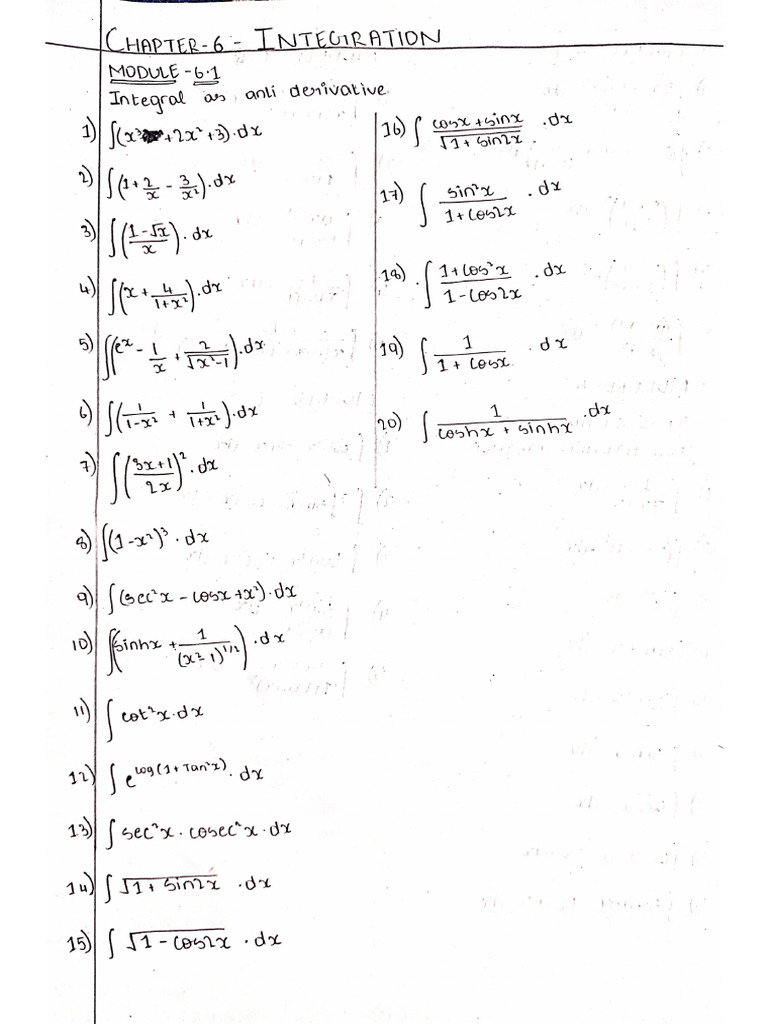 CHAPTER-6 - INTEGRATION
MODULE - 6.1
Integral as anti derivative
1) ∫(x³ + 2x² + 3).dx
2) ∫(1 + 2/x - 3/x²).dx
3) ∫((1-√x)/x).dx
4) ∫(x + 4/(1+x²)).dx
5) ∫(eˣ - 1/x + 2/√(x²-1)).dx
6) ∫(1/(1-x²) + 1/(1+x²)).dx
7) ∫((3x+1)/2x)².dx
8) ∫(1-x²)³.dx
9) ∫(sec²x - cosx + x²).dx
10) ∫(sinhx + 1/(x²-1)^1/2).dx
11) ∫cot²x.dx
12) ∫e^log(1+Tan²x).dx
13) ∫sec²x.cosec²x.dx
14) ∫√(1+sin2x).dx
15) ∫√(1-cos2x).dx
16) ∫(cosx+sinx)/√(1+sin2x).dx
17) ∫sin²x/(1+cos2x).dx
18) ∫(1+cos²x)/(1-cos2x).dx
19) ∫1/(1+cosx).dx
20) ∫1/(coshx+sinhx).dx